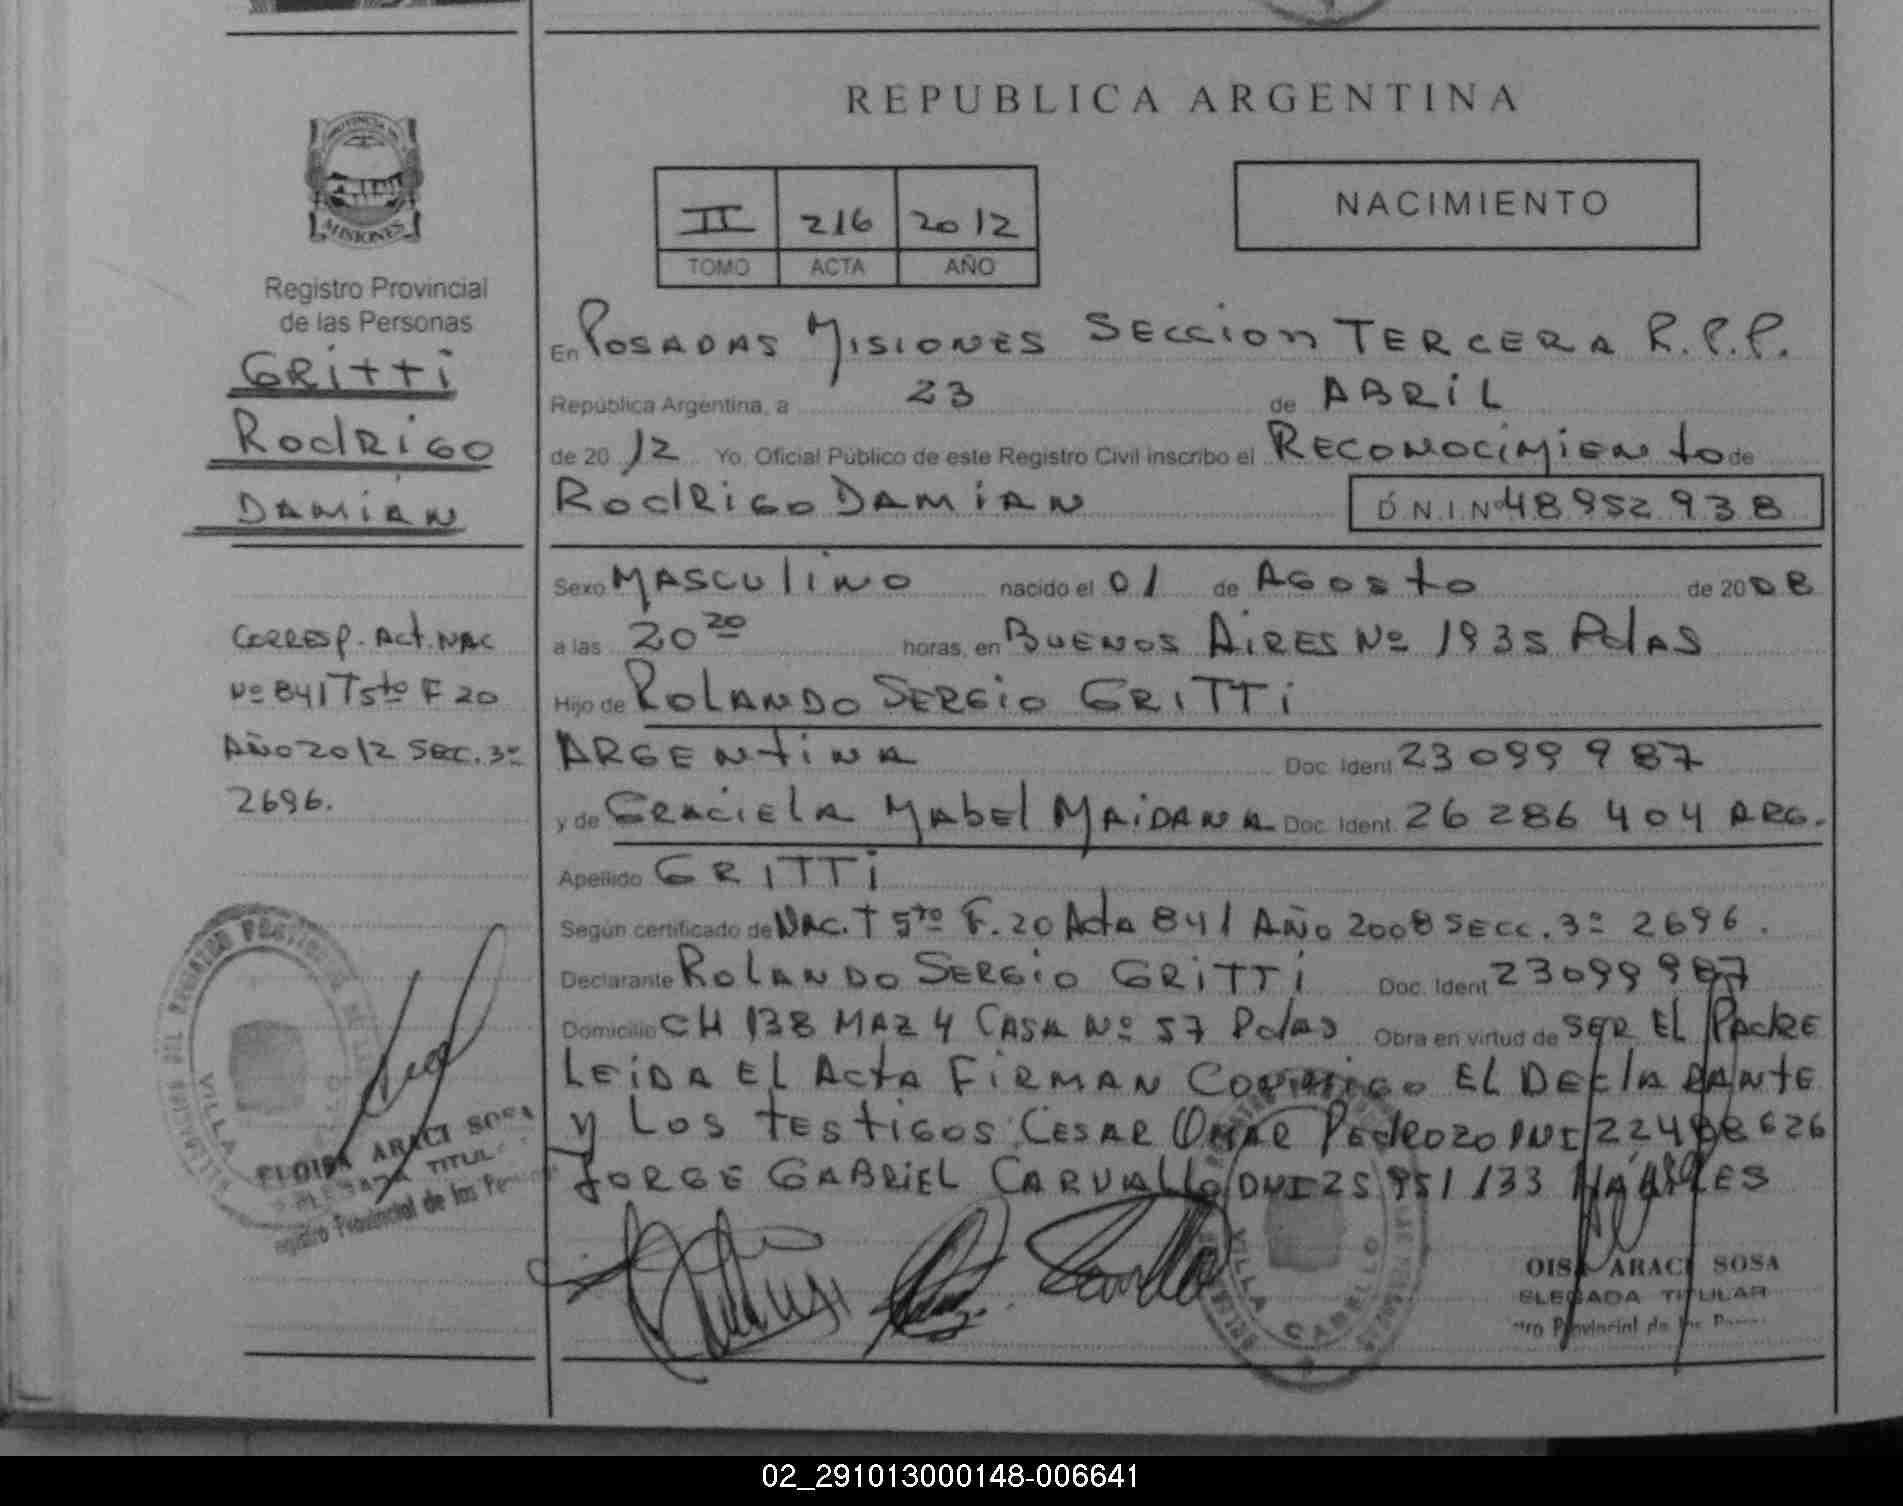 PROVINCIA DE
MISIONES
Registro Provincial
de las Personas
GRITTI
RODRIGO
DAMIÁN
CORRESP. ACT. NAC
Nº 841 T 5to F 20
AÑO 2012 SEC. 3º
2696.
VILLA
ARACI SOSA
TITUL
Provincial de las
REPUBLICA ARGENTINA
II 216 2012
TOMO ACTA AÑO
NACIMIENTO
En POSADAS MISIONES SECCION TERCERA R.P.P.
República Argentina, a 23 de ABRIL
de 20 12 Yo, Oficial Público de este Registro Civil inscribo el RECONOCIMIENTO de
RODRIGO DAMIAN D.N.I.Nº 48952938
Sexo MASCULINO nacido el 01 de AGOSTO de 20 08
a las 20 20 horas, en BUENOS AIRES Nº 1935 PdAS
Hijo de ROLANDO SERGIO GRITTI
ARGENTINA Doc. Ident 23099987
y de GRACIELA MABEL MAIDANA Doc. Ident. 26286404 ARG.
Apellido GRITTI
Según certificado de NAC. T 5to F. 20 Acta 841 AÑO 2008 SECC. 3º 2696.
Declarante ROLANDO SERGIO GRITTI Doc. Ident 23099987
Domicilio CH 138 MAZ 4 CASA Nº 57 PdAS Obra en virtud de SER EL PADRE
LEIDA EL ACTA FIRMAN CONMIGO EL DECLARANTE
y LOS TESTIGOS: CESAR OMAR PEDROZO DNI 22488626
JORGE GABRIEL CARVALLO DNI 25951133 HÁBILES
VILLA CABELLO
ARACI SOSA
DELEGADA TITULAR
Provincial de las
02_291013000148-006641